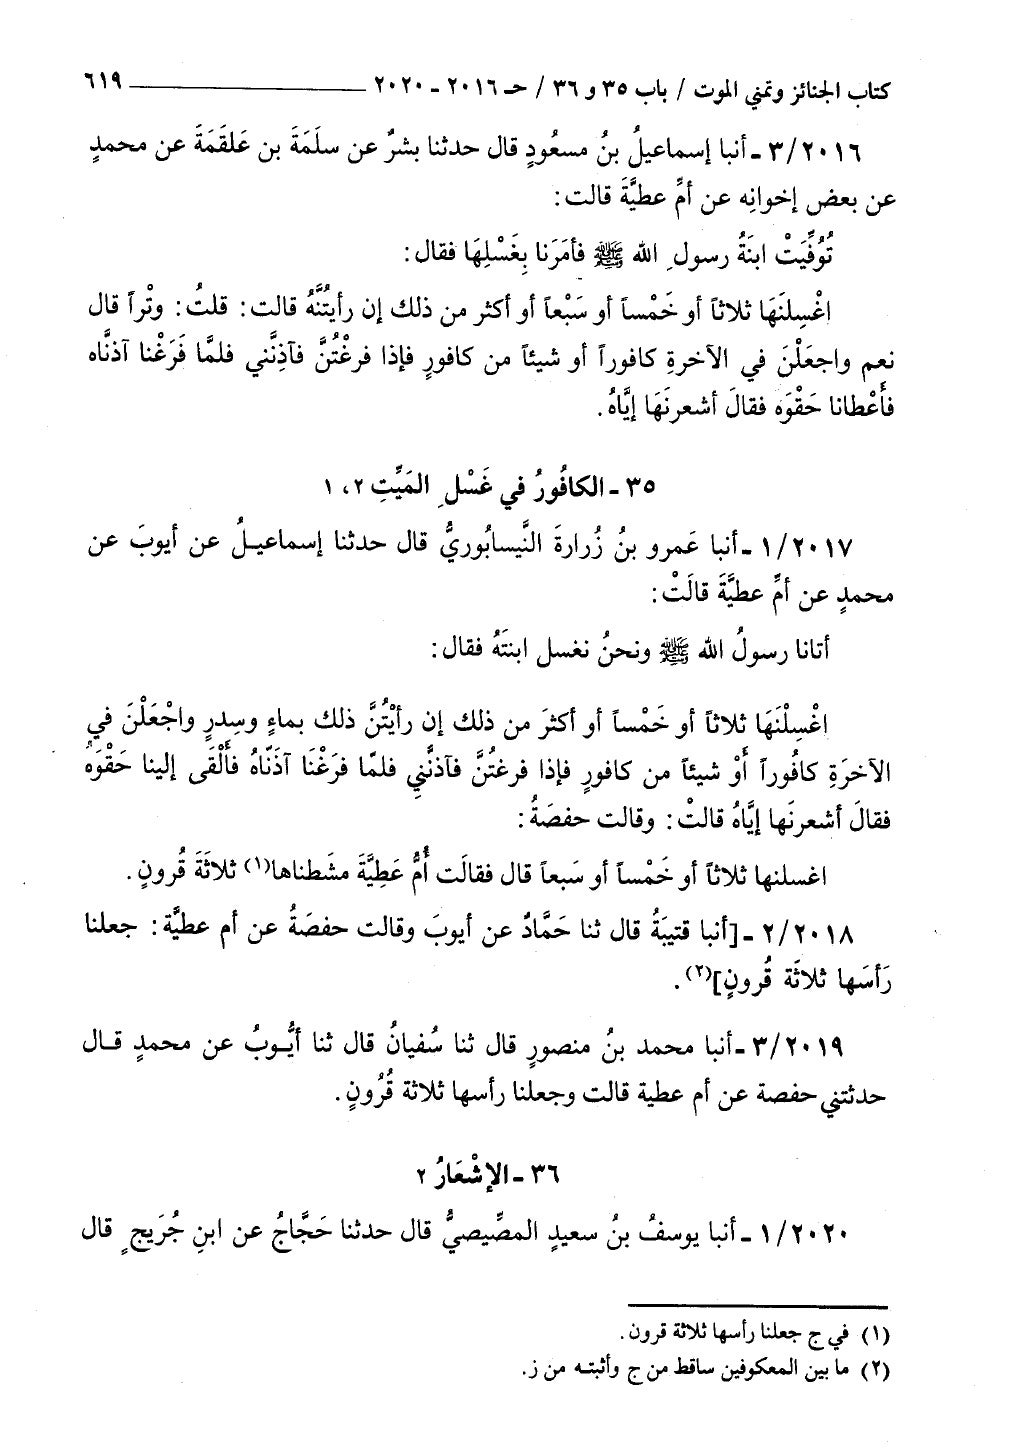 كتاب الجنائز وتمني الموت / باب ٣٥ و ٣٦ / حـ ٢٠١٦ ـ ٢٠٢٠ ــــــــــــــــ ٦١٩
٣/٢٠١٦ ـ أنبا إسماعيلُ بنُ مسعُودٍ قال حدثنا بشرٌ عن سلَمَةَ بن عَلقَمَةَ عن محمدٍ
عن بعض إخوانِه عن أمِّ عطيَّةَ قالت:
تُوُفِّيَتْ ابنَةُ رسولِ الله ﷺ فأمَرَنا بِغَسْلِهَا فقال:
اغْسِلنَها ثلاثاً أو خَمْساً أو سَبْعاً أو أكثر من ذلك إن رأيتُنَّهُ قالت: قلتُ: وتْراً قال
نعم واجعَلْنَ في الآخرةِ كافوراً أو شيئاً من كافورٍ فإذا فرغْتُنَّ فآذِنَّني فلمَّا فَرَغْنا آذنَّاه
فأَعْطانا حَقْوَه فقالَ أشعرنَهَا إيَّاهُ.
٣٥ ـ الكافُورُ في غَسْلِ المَيِّتِ ٢، ١
١/٢٠١٧ ـ أنبا عَمرو بنُ زُرارةَ النَّيسابُوريُّ قال حدثنا إسماعيـلُ عن أيوبَ عن
محمدٍ عن أمِّ عطيَّةَ قالَتْ:
أتانا رسولُ الله ﷺ ونحنُ نغسل ابنتَهُ فقال:
اغْسِلْنَهَا ثلاثاً أو خَمْساً أو أكثرَ من ذلك إن رأيْتُنَّ ذلك بماءٍ وسِدرٍ واجْعَلْنَ في
الآخرَةِ كافُوراً أَوْ شيئاً من كافورٍ فإذا فرغتُنَّ فآذنَّنيِ فلمّا فرَغْنَا آذَنّاهُ فأَلْقى إلينا حَقْوَهُ
فقالَ أشعرنَها إيَّاهُ قالتْ: وقالت حفصَةُ:
اغسلنها ثلاثاً أو خَمْساً أو سَبعاً قال فقالَت أُمُّ عَطِيَّةَ مشَطناها(١) ثلاثَةَ قُرونٍ.
٢/٢٠١٨ ـ [أنبا قتيبَةُ قال ثنا حَمَّادٌ عن أيوبَ وقالت حفصَةُ عن أم عطيَّة: جعلنا
رَأسَها ثلاثَة قُرونٍ](٢).
٣/٢٠١٩ ـ أنبا محمد بنُ منصورٍ قال ثنا سُفيانُ قال ثنا أيُّـوبُ عن محمدٍ قـال
حدثتني حفصة عن أم عطية قالت وجعلنا رأسها ثلاثة قُرُونٍ.
٣٦ ـ الإشْعَارُ ٢
١/٢٠٢٠ ـ أنبا يوسفُ بنُ سعيدٍ المصِّيصيُّ قال حدثنا حَجَّاجُ عن ابنِ جُرَيجٍ قال
(١) في ج جعلنا رأسها ثلاثة قرون.
(٢) ما بين المعكوفين ساقط من ج وأثبتـه من ز.